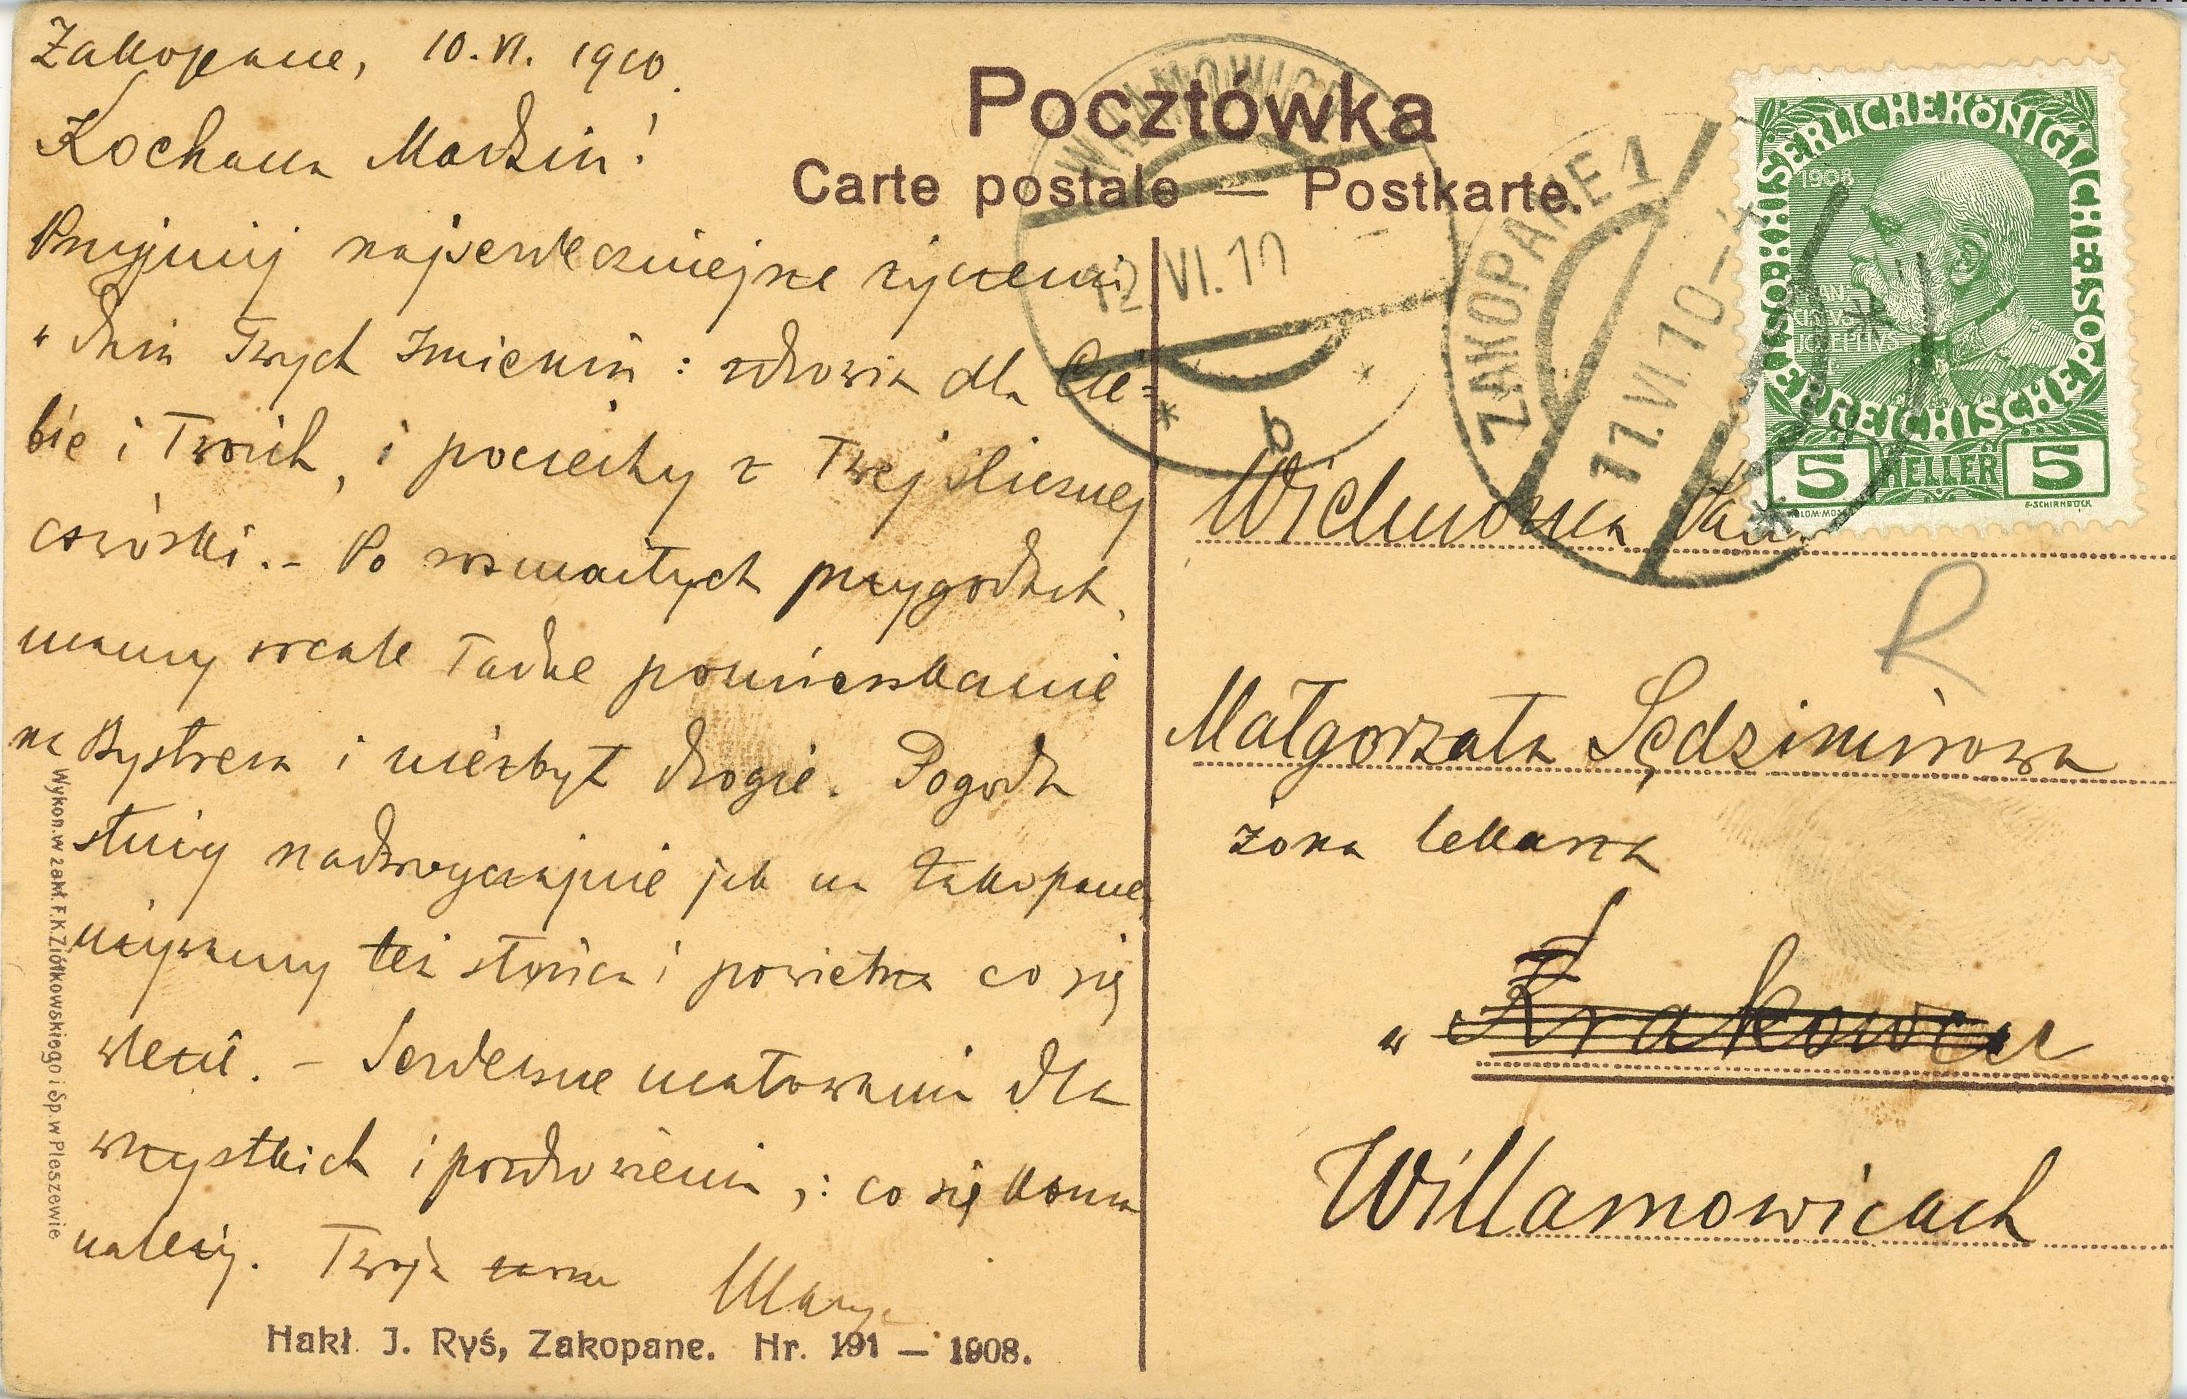 Zakopane, 10.VI. 1910.
Kochana Madziu!
Przyjmij najserdeczniejsze życzenia
w dniu Twych Imienin: zdrowia dla Cie=
bie i Twoich, i pociechy z Twej ślicznej
córóski. – Po rozmaitych przygodach,
mamy wcale ładne pomieszkanie
na Bystrem i niezbyt drogie. Pogoda
służy nadzwyczajnie jak na Zakopane,
używamy też słońca i powietrza co się
wlezie. – Serdeczne ucałowania dla
wszystkich i pozdrowienia,: co się komu
należy. Twoja zawsze Marya
Hakł. J. Ryś, Zakopane. Nr. 191 – 1908.
Wykon. w zakł. F. K. Ziółkowskiego i Sp. w Pleszewie
Pocztówka
Carte postale — Postkarte.
WILAMOWICE
12 VI. 10
* b *
ZAKOPANE 1
11.VI.10-4
KAISERLICHE KÖNIGLICHE ÖSTERREICHISCHE POST
1908
FRANCISCVS IOSEPHVS
5 HELLER 5
KOLOM·MOSER F·SCHIRNBÖCK
Wielmożna Pani
R
Małgorzata Sędzimirowa
żona lekarza
w Krakowcu
Willamowicach